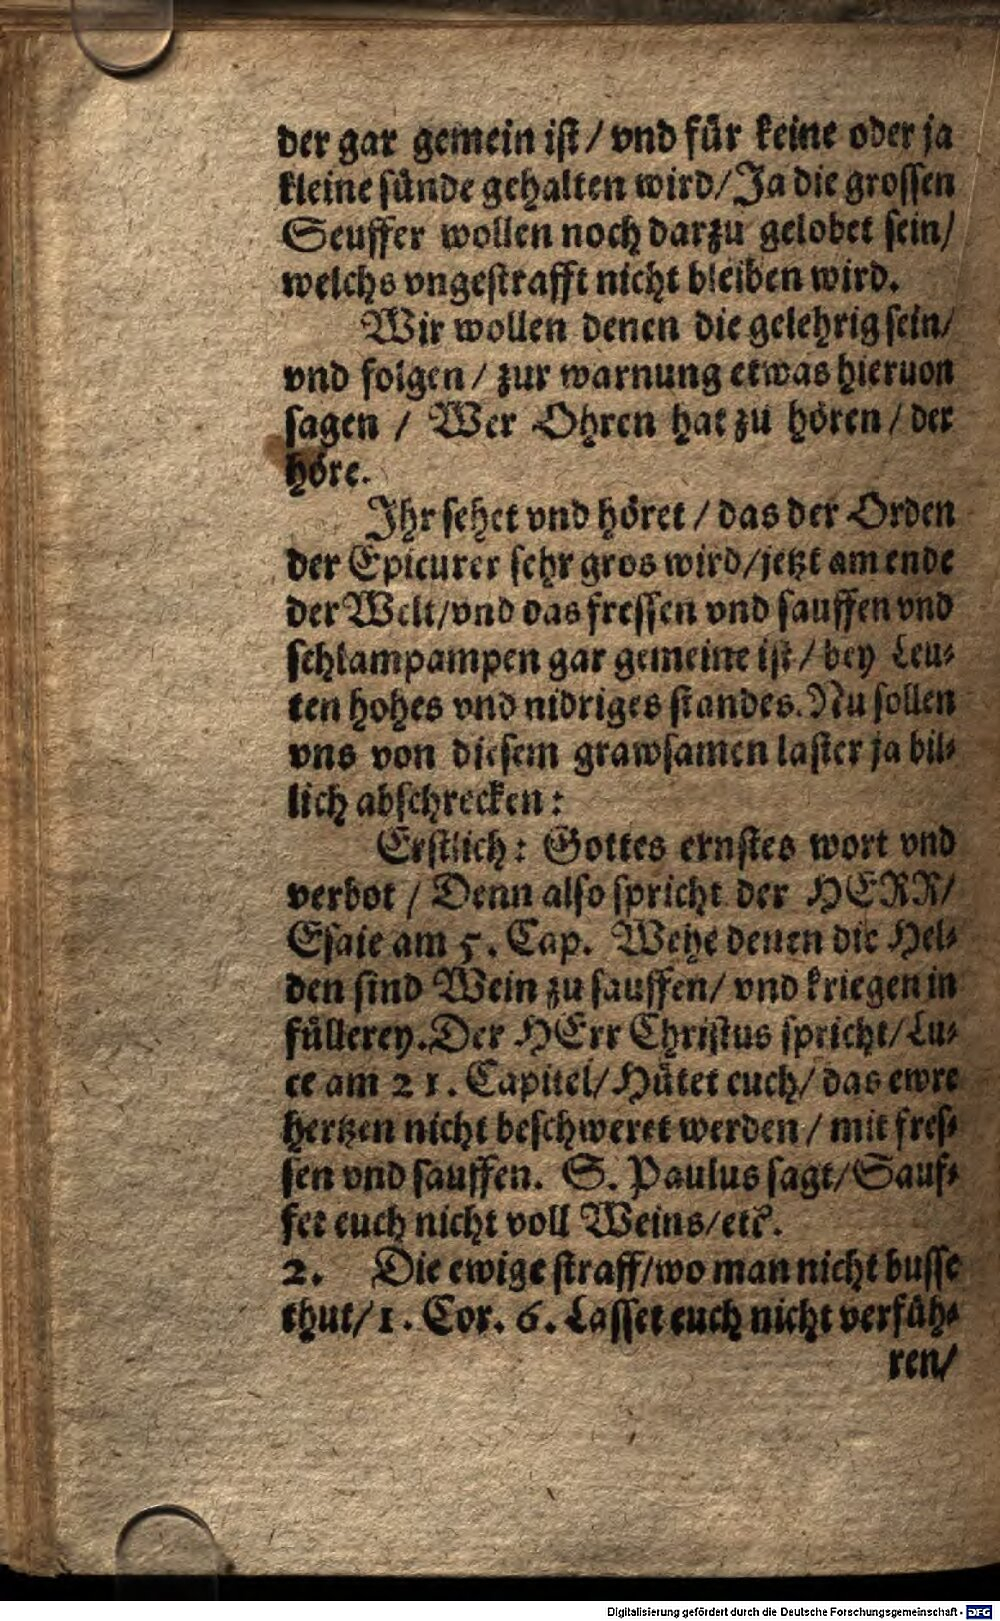 der gar gemein ist / vnd für keine oder ja
kleine sünde gehalten wird/ Ja die grossen
Seuffer wollen noch darzu gelobet sein/
welchs vngestrafft nicht bleiben wird.
Wir wollen denen die gelehrig sein/
vnd folgen / zur warnung etwas hieruon
sagen / Wer Ohren hat zu hören / der
höre.
Ihr sehet vnd höret / das der Orden
der Epicurer sehr gros wird/jetzt am ende
der Welt/vnd das fressen vnd sauffen vnd
schlampampen gar gemeine ist / bey Leu-
ten hohes vnd nidriges standes. Nu sollen
vns von diesem grawsamen laster ja bil-
lich abschrecken:
Erstlich: Gottes ernstes wort vnd
verbot / Denn also spricht der HERR/
Esaie am 5. Cap. Wehe denen die Hel-
den sind Wein zu sauffen/ vnd kriegen in
füllerey. Der HErr Christus spricht/ Lu-
ce am 21. Capitel/ Hütet euch/ das ewre
hertzen nicht beschweret werden / mit fres-
sen vnd sauffen. S. Paulus sagt/ Sauf-
fet euch nicht voll Weins/etc.
2. Die ewige straff/wo man nicht busse
thut/ 1. Cor. 6. Lasset euch nicht verfüh-
ren/
Digitalisierung gefördert durch die Deutsche Forschungsgemeinschaft - DFG